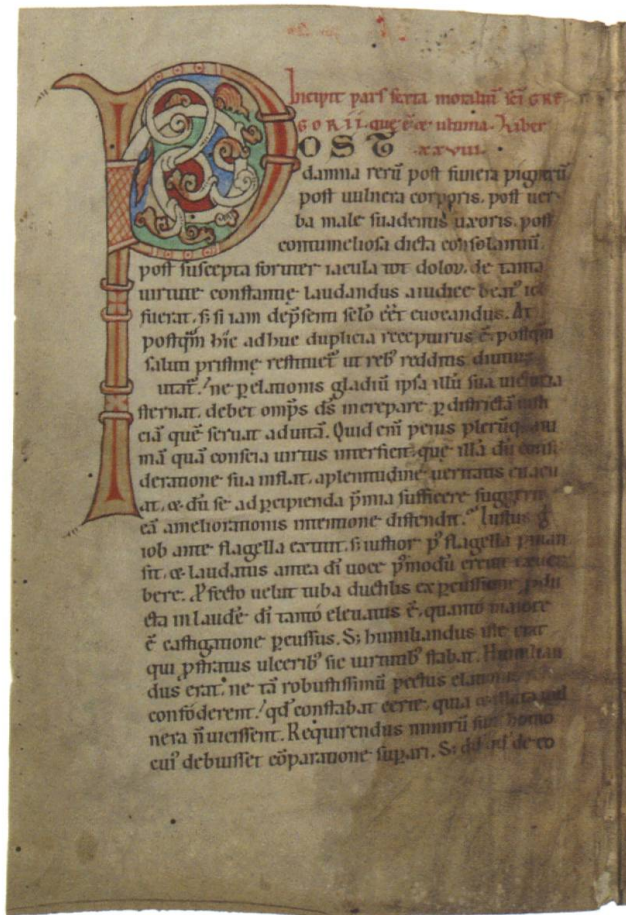 Incipit pars sexta moraliū sc̄i GRE
GORII. que ē & ultima. Liber
POST .xxviii.
damna rerū post funera pignerū
post uulnera corporis. post uer
ba male suadentis uxoris. post
contumeliosa dicta consolantiū.
post suscepta fortiter iacula tot dolorū. de tanta
uirtute constantię laudandus a iudice beatꝰ iob
fuerat. s; si iam de p̄senti sc̄lo eēt euocandus. At
postq̄m hic adhuc duplicia recepturus ē. postq̄m
saluti pristinę restituet̄ ut rebꝰ redditis diutius
utat̄. ne p elationis gladiū ipsa illū sua uictoria
sternat. debet omp̄s d̄s increpare p districtā iusti
ciā quē seruat ad uitā. Quid eni peius plerūq; ani
mā quā conscia uirtus interficit. quę illā dū consi
deratione sua inflat. a plenitudine ueritatis euacu
at. & dū se ad pcipienda p̄mia sufficere suggerit.
eā a meliorationis intentione distendit. Iustus g̊
iob ante flagella extitit. s; iustior p̊ flagella pman
sit. & laudatus antea di uoce p̄modū creuit ex uer
bere. Pfecto uelut tuba ductilis ex pcussione pdu
cta in laudē di tanto eleuatus ē. quanto maiore
ē castigatione pcussus. S; humiliandus iste erat
qui pstratus ulceribꝰ sic uirtutibꝰ stabat. Humilian
dus erat. ne tā robustissimū pectus elationis
confoderent. qd̄ constabat certe. quia & illata uul
nera n̄ uicissent. Requirendus nimirū fuit homo
cuiꝰ debuisset cōparatione supari. S; qd̄ de eo